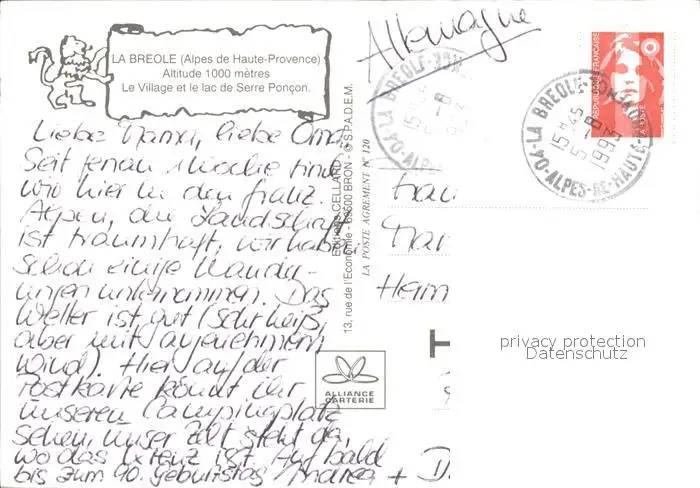 LA BREOLE (Alpes de Haute-Provence)
Altitude 1000 mètres
Le Village et le lac de Serre Ponçon.
Allemagne
Liebe Mama, liebe Oma,
Seit genau 1 Woche sind
wir hier in den franz.
Alpen, die Landschaft
ist traumhaft, wir haben
schon einige Wander-
ungen unternommen. Das
Wetter ist gut (sehr heiß,
aber mit angenehmem
Wind). Hier auf der
Postkarte könnt ihr
unseren Campingplatz
sehen, unser Zelt steht da,
wo das Kreuz ist. Auf bald
bis zum 90. Geburtstag Andrea + D
Editions CELLARD
13, rue de l'Economie - 69500 BRON - © S.P.A.D.E.M.
LA POSTE AGREMENT N° 120
ALLIANCE
CARTERIE
Frau
Mar
Herm
T
REPUBLIQUE FRANÇAISE
LA POSTE
04-LA BREOLE
15H45
5-8
1993
ALPES-DE-HAUTE-PROVENCE
LA BREOLE
04-ALPES
privacy protection
Datenschutz